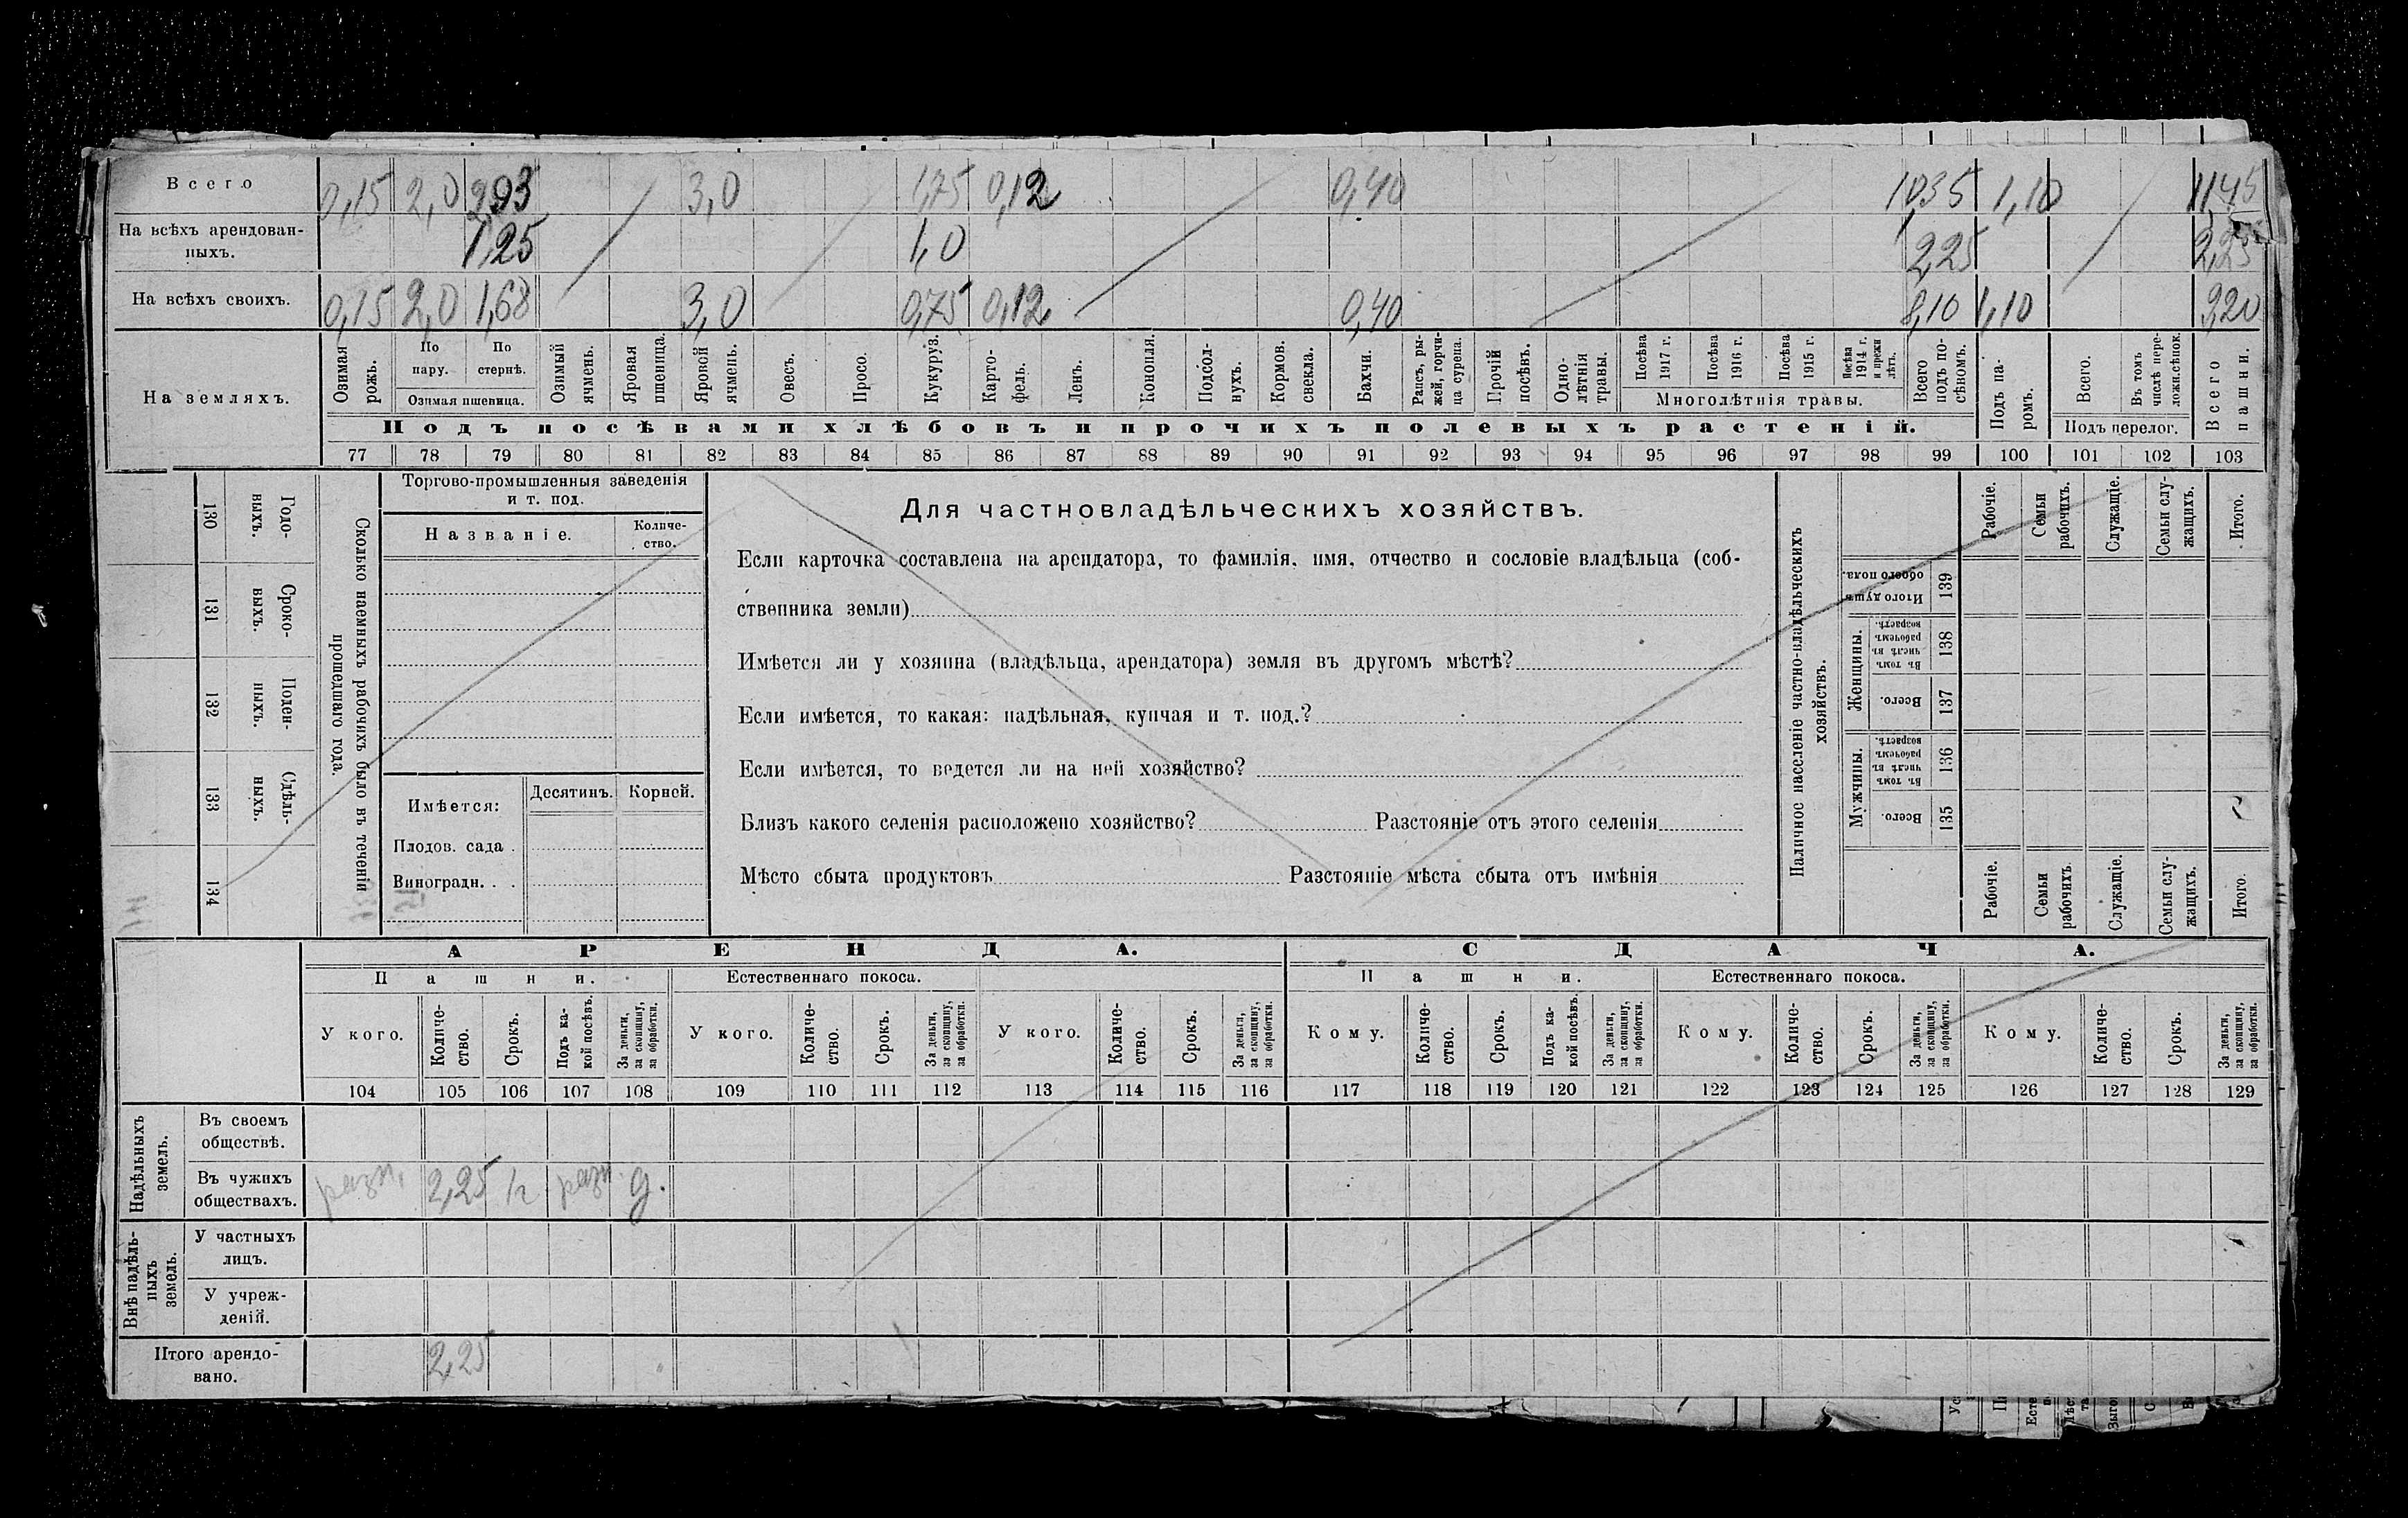 Всего 0,15 2,0 2,93 3,0 1,75 0,12 0,40 10,35 1,10 11,45
На всѣхъ арендован-
ныхъ. 1,25 1,0 2,25 2,25
На всѣхъ своихъ. 0,15 2,0 1,68 3,0 0,75 0,12 0,40 8,10 1,10 9,20
На земляхъ.
Озимая рожь.
По пару.
По стернѣ.
Озимая пшеница.
Озимый ячмень.
Яровая пшеница.
Яровой ячмень.
Овесъ.
Просо.
Кукуруз.
Карто-
фель.
Ленъ.
Конопля.
Подсол-
нухъ.
Кормов. свекла.
Бахчи.
Рапсъ, ры-
жей, горчи-
ца сурепа.
Прочій посѣвъ.
Одно-
лѣтнія травы.
Посѣва 1917 г.
Посѣва 1916 г.
Посѣва 1915 г.
Посѣва 1914 г. и прежн лѣтъ.
Многолѣтнія травы.
Всего подъ по-
сѣвомъ.
Подъ па-
ромъ.
Всего.
Въ томъ числѣ пере-
ложн.сѣнок.
Подъ перелог.
Всего пашни.
Подъ посѣвами хлѣбовъ и прочихъ полевыхъ растеній.
77 78 79 80 81 82 83 84 85 86 87 88 89 90 91 92 93 94 95 96 97 98 99 100 101 102 103
130 Годо-
выхъ.
131 Сроко-
выхъ.
132 Поден-
ныхъ.
133 Сдѣль-
ныхъ.
134
Сколько наемныхъ рабочихъ было въ теченіи
прошедшаго года.
Торгово-промышленныя заведенія
и т. под.
Названіе.
Количе-
ство.
Имѣется: Десятинъ. Корней.
Плодов. сада .
Виноградн. . .
Для частновладѣльческихъ хозяйствъ.
Если карточка составлена на арендатора, то фамилія, имя, отчество и сословіе владѣльца (соб-
ственника земли)
Имѣется ли у хозяина (владѣльца, арендатора) земля въ другомъ мѣстѣ?
Если имѣется, то какая: надѣльная, купчая и т. под.?
Если имѣется, то ведется ли на ней хозяйство?
Близъ какого селенія расположено хозяйство? Разстояніе отъ этого селенія
Мѣсто сбыта продуктовъ Разстояніе мѣста сбыта отъ имѣнія
Наличное населеніе частно-владѣльческихъ
хозяйствъ.
Рабочіе.
Семьи рабочихъ.
Служащіе.
Семьи слу-
жащихъ.
Итого.
Итого душъ обоего пола. 139
Женщины.
Въ томъ числѣ въ рабочемъ возрастѣ. 138
Всего. 137
Мужчины.
Въ томъ числѣ въ рабочемъ возрастѣ. 136
Всего. 135
Рабочіе.
Семьи рабочихъ.
Служащіе.
Семьи слу-
жащихъ.
Итого.
АРЕНДА. СДАЧА.
Пашни. Естественнаго покоса. Пашни. Естественнаго покоса.
У кого.
Количе-
ство.
Срокъ.
Подъ ка-
кой посѣвъ.
За деньги, за скопщину, за обработки.
У кого.
Количе-
ство.
Срокъ.
За деньги, за скопщину, за обработки.
У кого.
Количе-
ство.
Срокъ.
За деньги, за скопщину, за обработки.
Кому.
Количе-
ство.
Срокъ.
Подъ ка-
кой посѣвъ.
За деньги, за скопщину, за обработки.
Кому.
Количе-
ство.
Срокъ.
За деньги, за скопщину, за обработки.
Кому.
Количе-
ство.
Срокъ.
За деньги, за скопщину, за обработки.
104 105 106 107 108 109 110 111 112 113 114 115 116 117 118 119 120 121 122 123 124 125 126 127 128 129
Надѣльныхъ земель.
Въ своемъ
обществѣ.
Въ чужихъ
обществахъ. разн. 2,25 1г разн. д.
Внѣ надѣль-
ныхъ земель.
У частныхъ
лицъ.
У учреж-
деній.
Итого арендо-
вано. 2,25